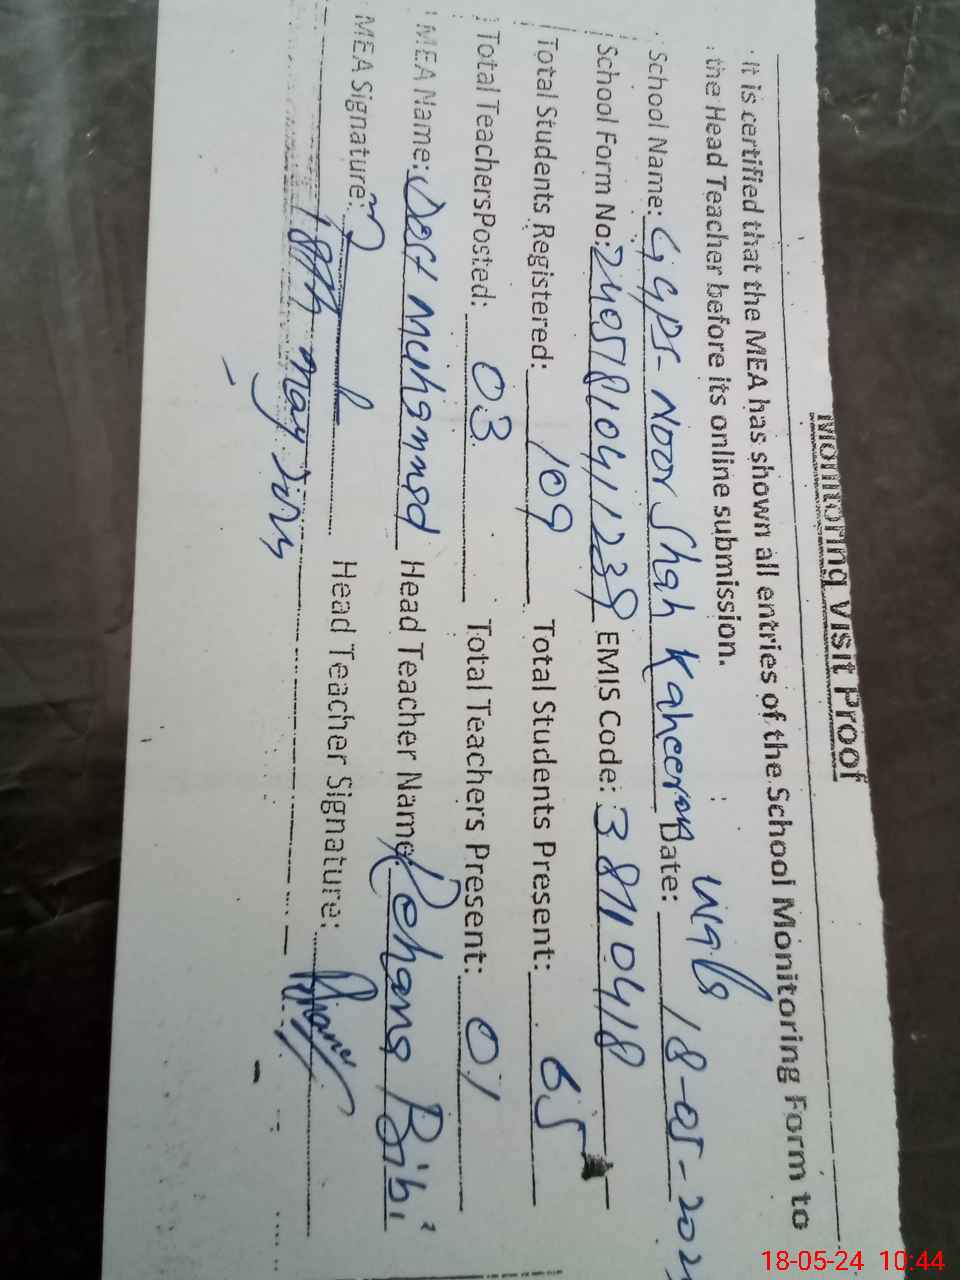 Monitoring Visit Proof
It is certified that the MEA has shown all entries of the School Monitoring Form to
the Head Teacher before its online submission.
School Name: GGPS Noor Shah Kaheeron wala Date: 18-05-202
School Form No: EMIS Code: 38710418
Total Students Registered: 109 Total Students Present: 65
Total Teachers Posted: 03 Total Teachers Present: 01
MEA Name: Dost Muhammad Head Teacher Name: Rehana Bibi
MEA Signature: Head Teacher Signature:
18th may
18-05-24 10:44